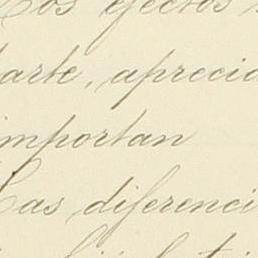 Los efectos
arte, aprecia
importan
Las diferenci